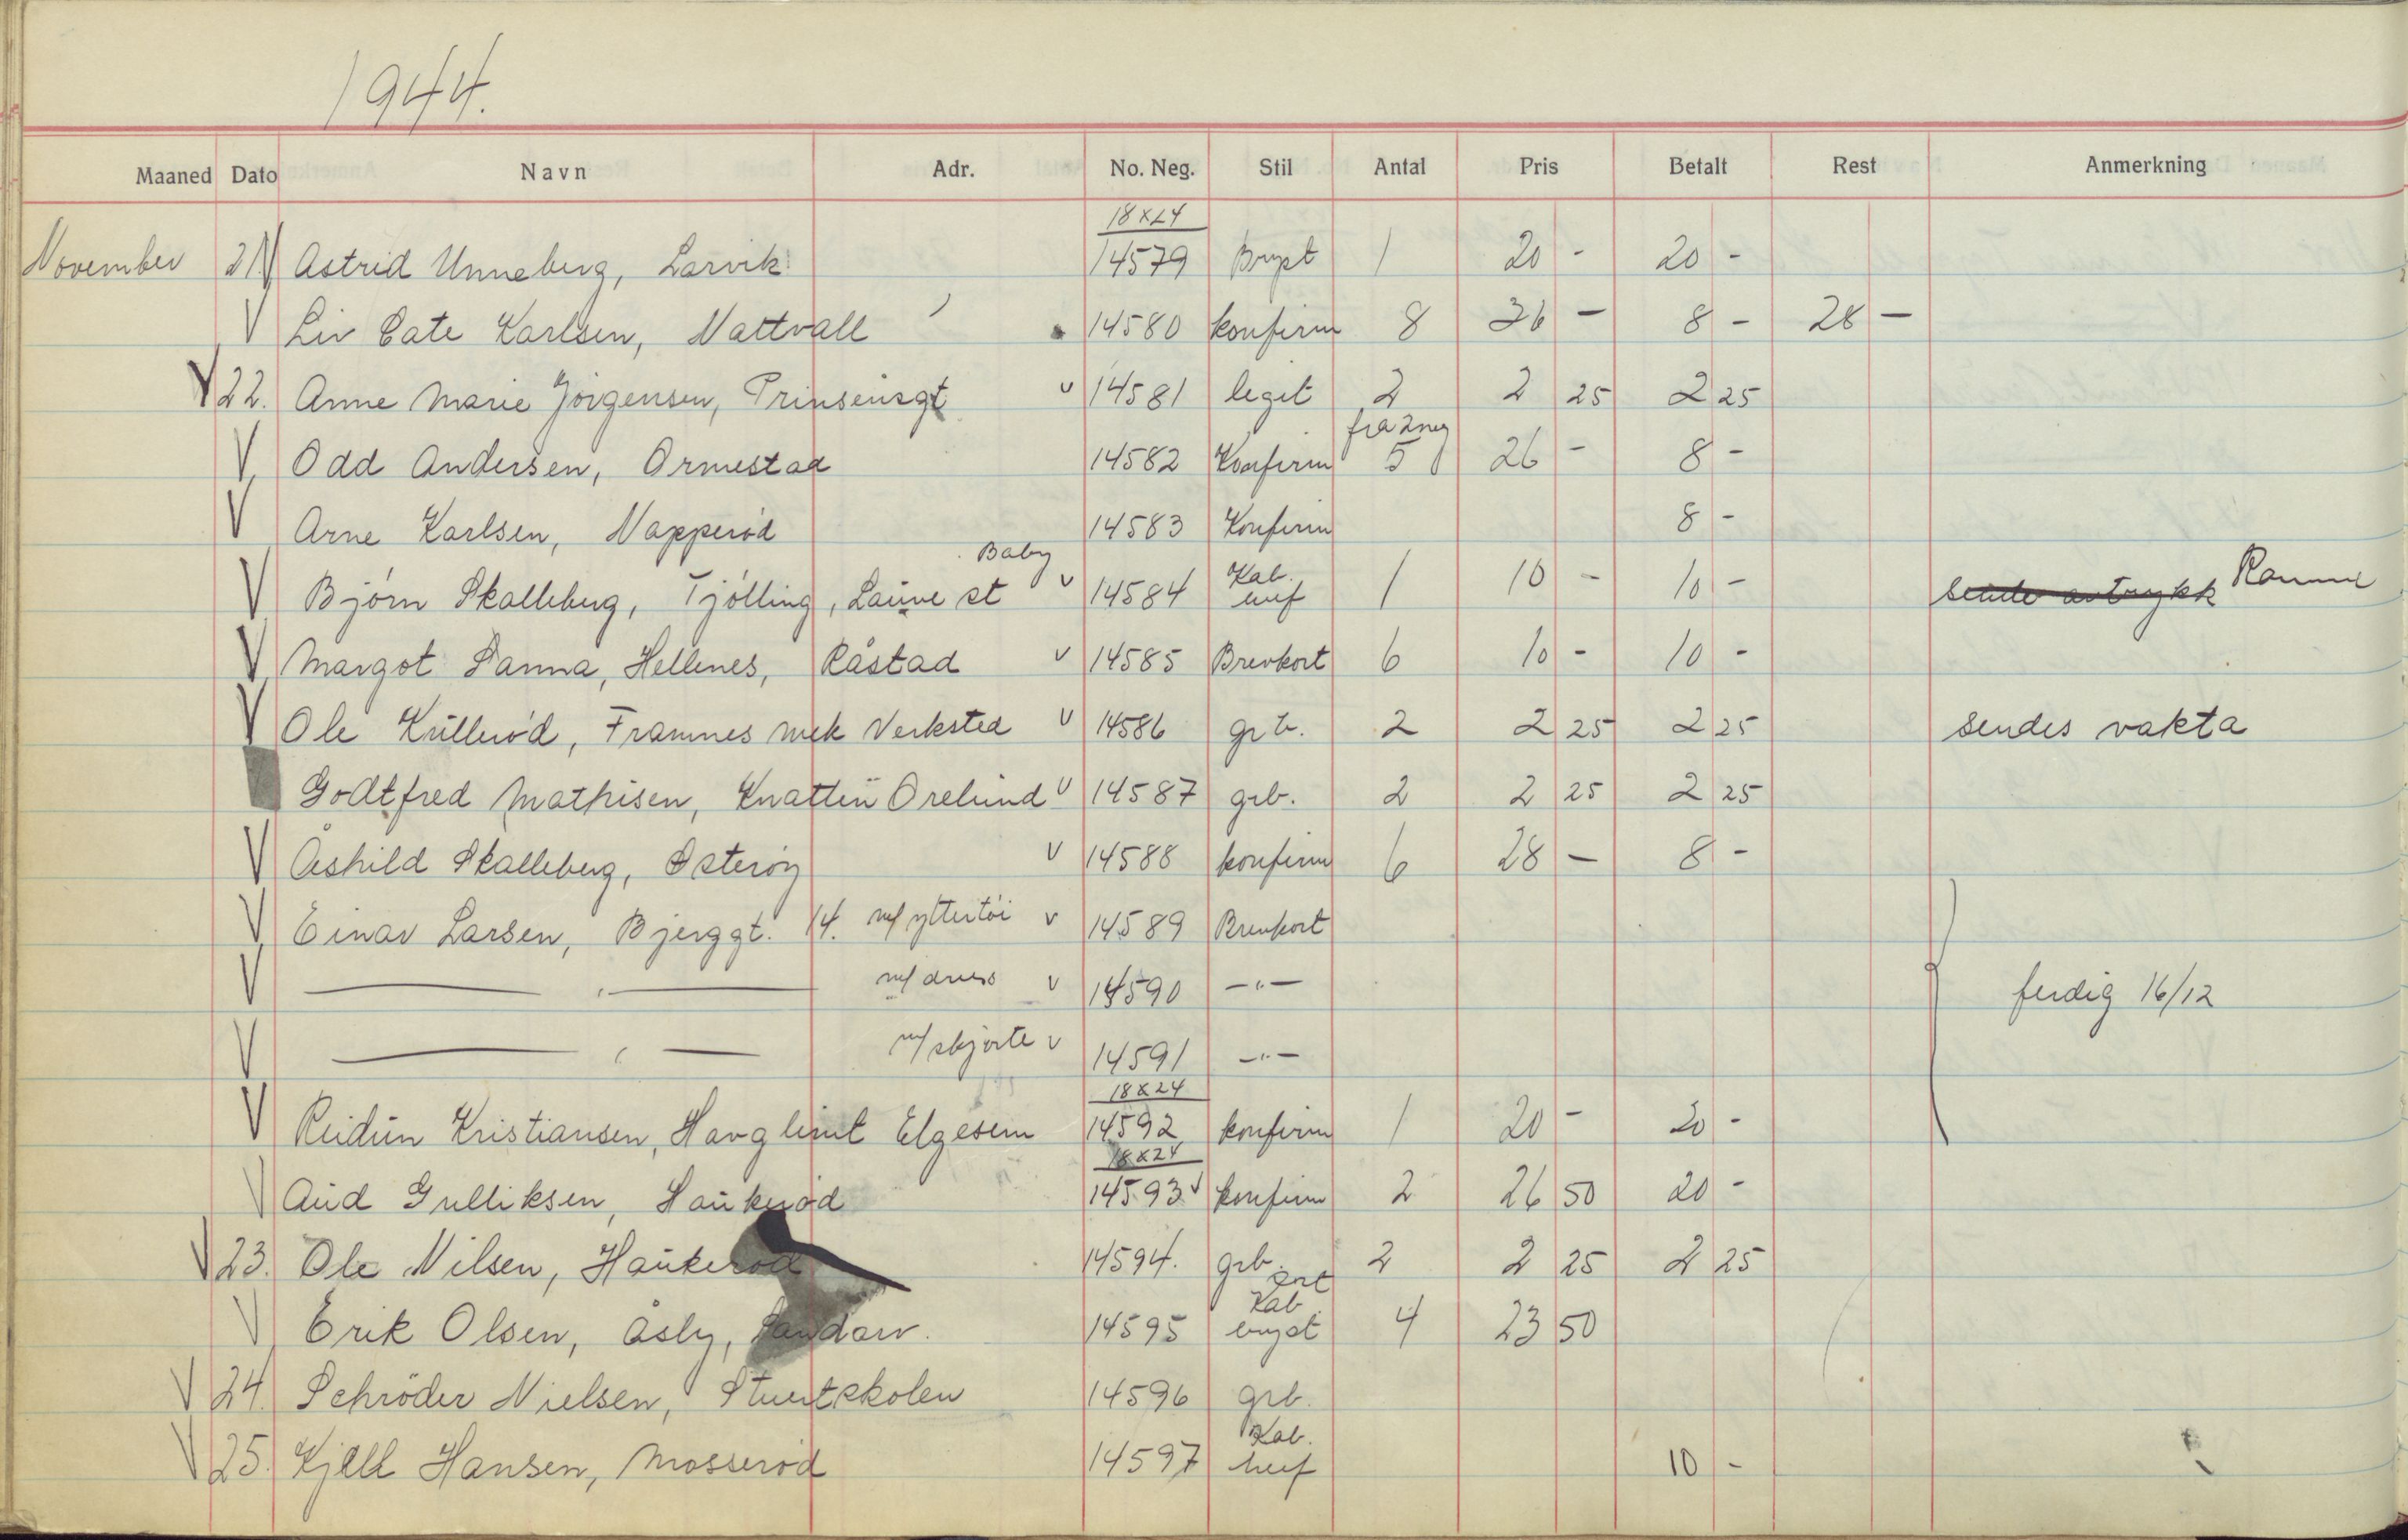 1944.
Maaned Dato Navn Adr. No. Neg. Stil Antal Pris Betalt Rest Anmerkning
18x24
November 21 Astrid Unneberg, Larvik 14579 Bryst 1 20 - 20 -
Liv Cate Karlsen, Nattvall 14580 konfirm 8 36 - 8 - 28 -
22. Anne Marie Jörgensen, Prinsensgt v 14581 leget 2 2 25 2 25
fra 2 neg
Odd Andersen, Ormestad 14582 Konfirm 5 26 - 8 -
Arne Karlsen, Napperöd 14583 Konfirm 8 -
Baby
Björn Skalleberg, Tjölling, Lauve st v 14584 Kab. 1 10 - 10 - sende avtrykk Ramme
Margot Sanna, Hellenes, Råstad v 14585 Brevkort 6 10 - 10 -
Ole Kulleröd, Framnes mek Verksted v 14586 grb. 2 2 25 2 25 sendes vakta
Godtfred Mathisen, Knatten Orelund v 14587 grb. 2 2 25 2 25
Åshild Skalleberg, Österöy v 14588 konfirm 6 28 - 8 -
Einar Larsen, Bjerggt. 14. m/ yttertöi v 14589 Brevkort
— " — m/ dress v 14590 — " — ferdig 16/12
— " — m/ skjorte v 14591 — " —
18x24
Reidun Kristiansen, Haugleint Elgesem 14592 konfirm 1 20 - 20 -
18x24
Aud Gulliksen, Haukeröd 14593 v konfirm 2 26 50 20 -
23. Ole Nilsen, Haukeröd 14594. grb. 2 2 25 2 25
Kab
Erik Olsen, Åsly, Sandar. 14595 bryst 4 23 50
24. Schröder Nielsen, Stuertskolen 14596 grb.
Kab.
25. Kjell Hansen, Mosseröd 14597 10 -